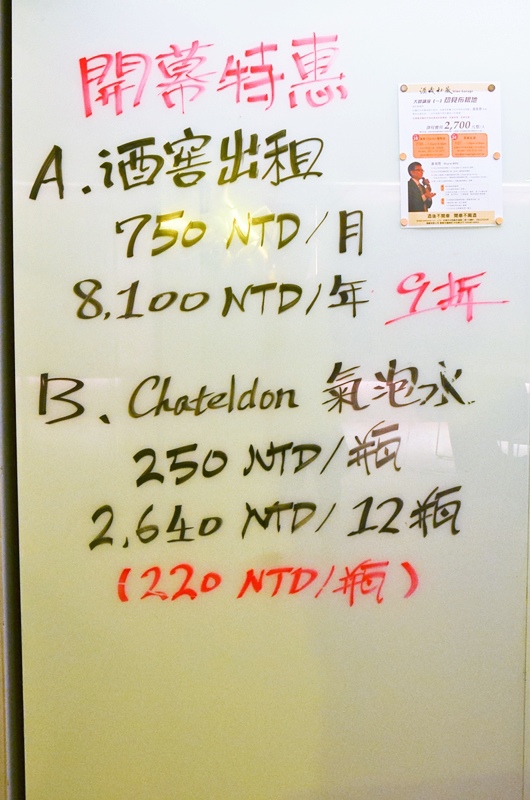 開幕特惠
A.酒窖出租
750 NTD/月
8,100 NTD/年 9折
B、Chateldon 氣泡水
250 NTD/瓶
2,640 NTD/12瓶
(220 NTD/瓶)
2,700
酒後不開車 開車不喝酒